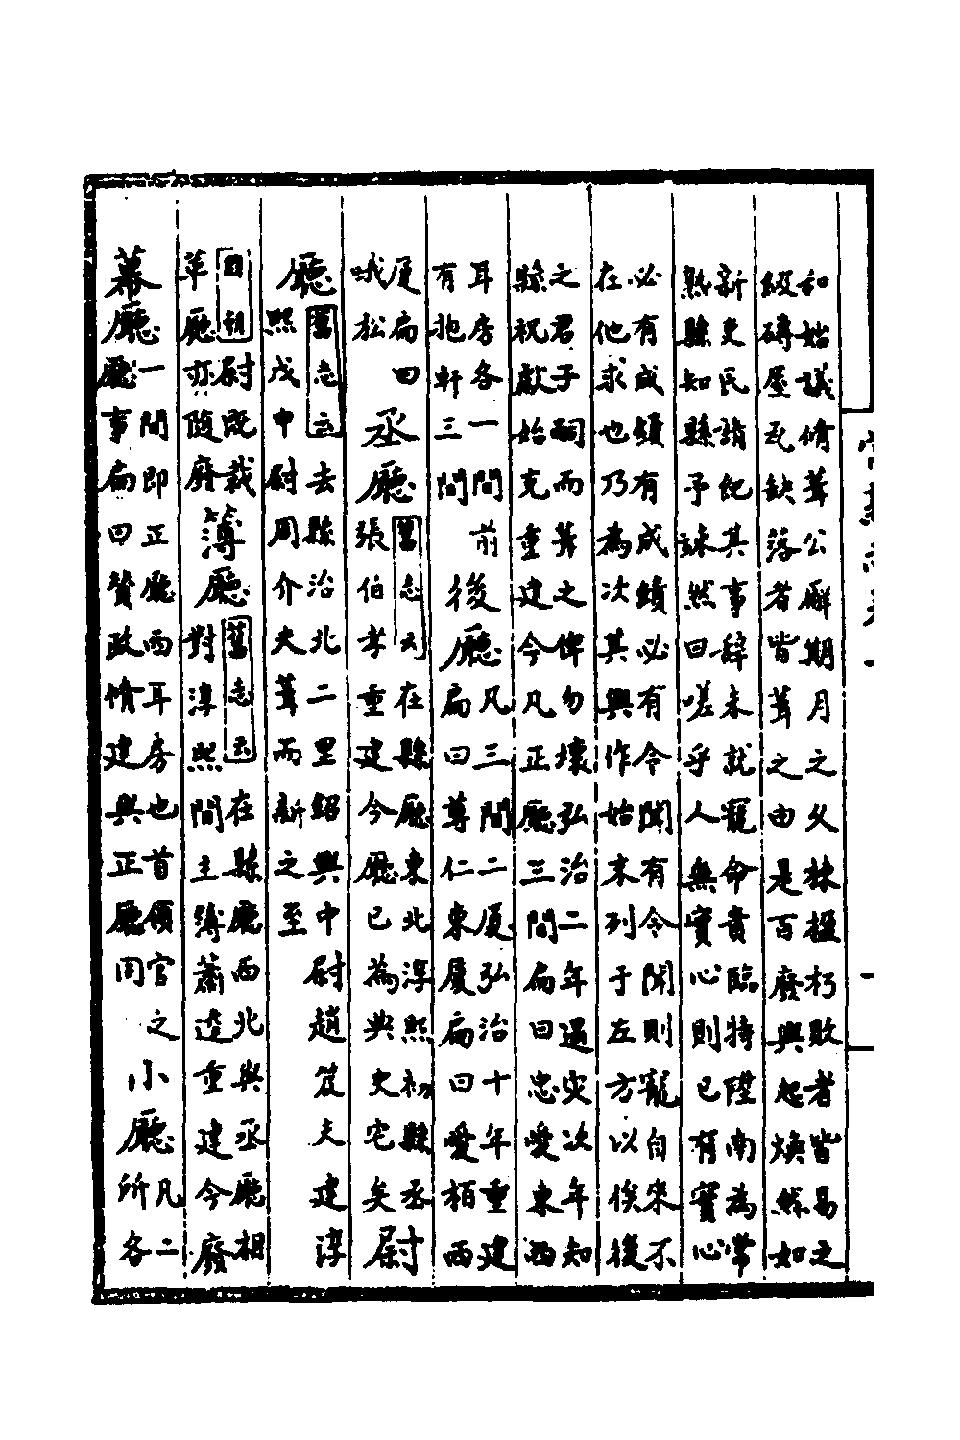 和始議脩葺公廨期月之父棟楹朽敗者皆易之
級磚屋瓦缺落者皆葺之由是百廢興起煥然如
新吏民請紀其事辭未就寵命賁臨特陞南為常
熟縣知縣予誄然曰嗟乎人無實心則已有實心
必有成績有成績必有令聞有令聞則寵自來不
在他求也乃為次其興作始末列于左方以俟後
之君子嗣而葺之俾勿壞弘治二年遇災次年知
縣祝獻始克重建今凡正廳三間扁曰忠愛東西
耳房各一間前
有抱軒三間
後廳
凡三間二厦弘治十年重建
扁曰尊仁東厦扁曰愛栢西
厦扁曰
哦松
丞廳
舊志云在縣廳東北淳熙初縣丞
張伯孝重建今廳已為典史宅矣
尉
廳
舊志云去縣治北二里紹興中尉趙笈夫建淳
熙戊申尉周介夫葺而新之至
國朝尉既裁
革廳亦隨廢
簿廳
舊志云在縣廳西北與丞廳相
對淳熙間主簿蕭逵重建今廢
幕廳
一間即正廳西耳房也首領官之
廳事扁曰贊政脩建與正廳同
小廳
凡二
所各